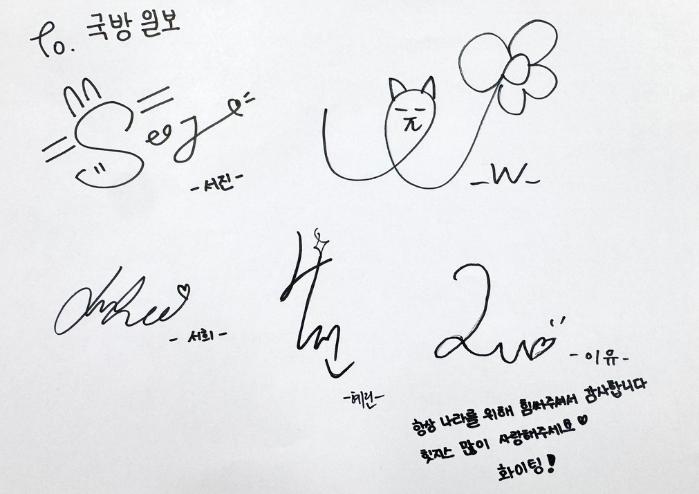 To. 국방일보
- 서진 -
- W -
- 서희 -
- 혜린 -
- 이유 -
항상 나라를 위해 힘써주셔서 감사합니다
힛지스 많이 사랑해주세요♡
화이팅!